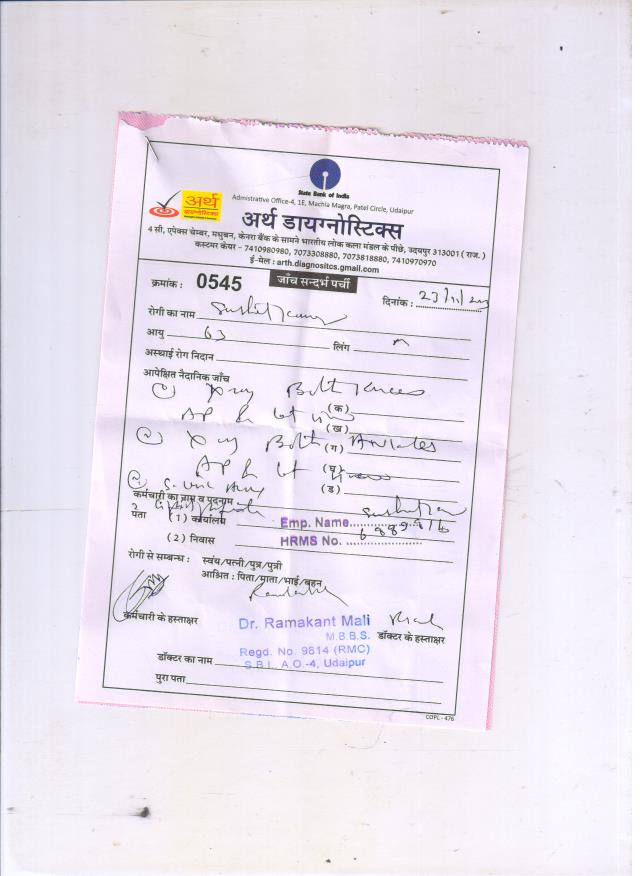 State Bank of India
Admistrative Office-4, 1E, Machla Magra, Patel Circle, Udaipur
अर्थ
डायग्नोस्टिक्स
अर्थ डायग्नोस्टिक्स
4 सी, एपेक्स चेम्बर, मधुबन, केनरा बैंक के सामने भारतीय लोक कला मंडल के पीछे, उदयपुर 313001 ( राज. )
कस्टमर केयर – 7410980980, 7073308880, 7073818880, 7410970970
ई-मेल : arth.diagnositcs.gmail.com
क्रमांक : 0545 जाँच सन्दर्भ पर्ची दिनांक : 23/11/
रोगी का नाम Sushil Kumar
आयु 63 लिंग M
अस्थाई रोग निदान
आपेक्षित नैदानिक जाँच
(1) X ray Both Knees (क)
AP & Lat (ख)
(2) X ray Both Ankles (ग)
AP & Lat (घ)
S. Uric (ड)
कर्मचारी का नाम व पदनाम
पता (1) कार्यालय Emp. Name
(2) निवास HRMS No.
रोगी से सम्बन्ध : स्वंय/पत्नी/पुत्र/पुत्री
आश्रित : पिता/माता/भाई/बहन
कर्मचारी के हस्ताक्षर डॉक्टर के हस्ताक्षर
Dr. Ramakant Mali
M.B.B.S.
Regd. No. 9814 (RMC)
S.B.I., A.O.-4, Udaipur
डॉक्टर का नाम
पुरा पता
COPL - 476